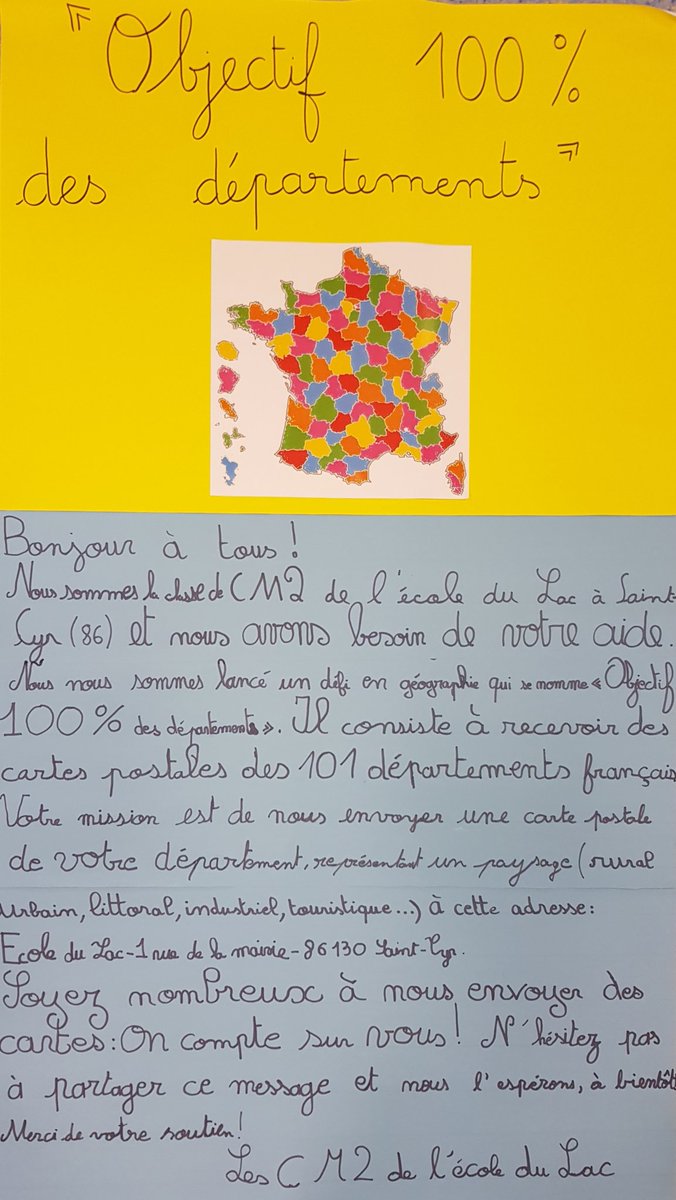 « Objectif 100 %
des départements »
Bonjour à tous !
Nous sommes la classe de CM2 de l'école du Lac à Saint-
Cyr (86) et nous avons besoin de votre aide.
Nous nous sommes lancé un défi en géographie qui se nomme « Objectif
100 % des départements ». Il consiste à recevoir des
cartes postales des 101 départements français
Votre mission est de nous envoyer une carte postale
de votre département, représentant un paysage (rural
urbain, littoral, industriel, touristique...) à cette adresse :
Ecole du Lac - 1 rue de la mairie - 86130 Saint-Cyr.
Soyez nombreux à nous envoyer des
cartes : On compte sur vous ! N'hésitez pas
à partager ce message et nous l'espérons, à bientôt
Merci de votre soutien !
Les CM2 de l'école du Lac